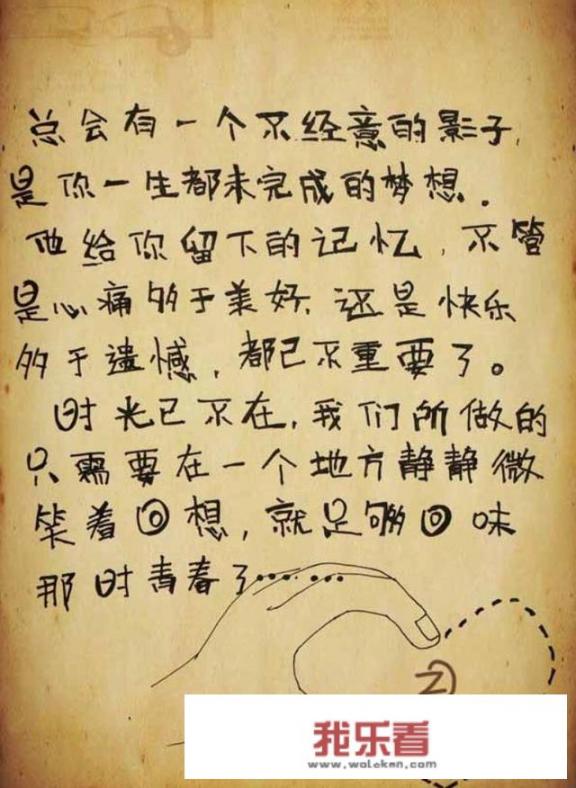 总会有一个不经意的影子,
是你一生都未完成的梦想.
他给你留下的记忆,不管
是心痛多于美好,还是快乐
多于遗憾,都已不重要了。
时光已不在,我们所做的
只需要在一个地方静静微
笑着回想,就足够回味
那时青春了......
我乐看
www.woleken.com